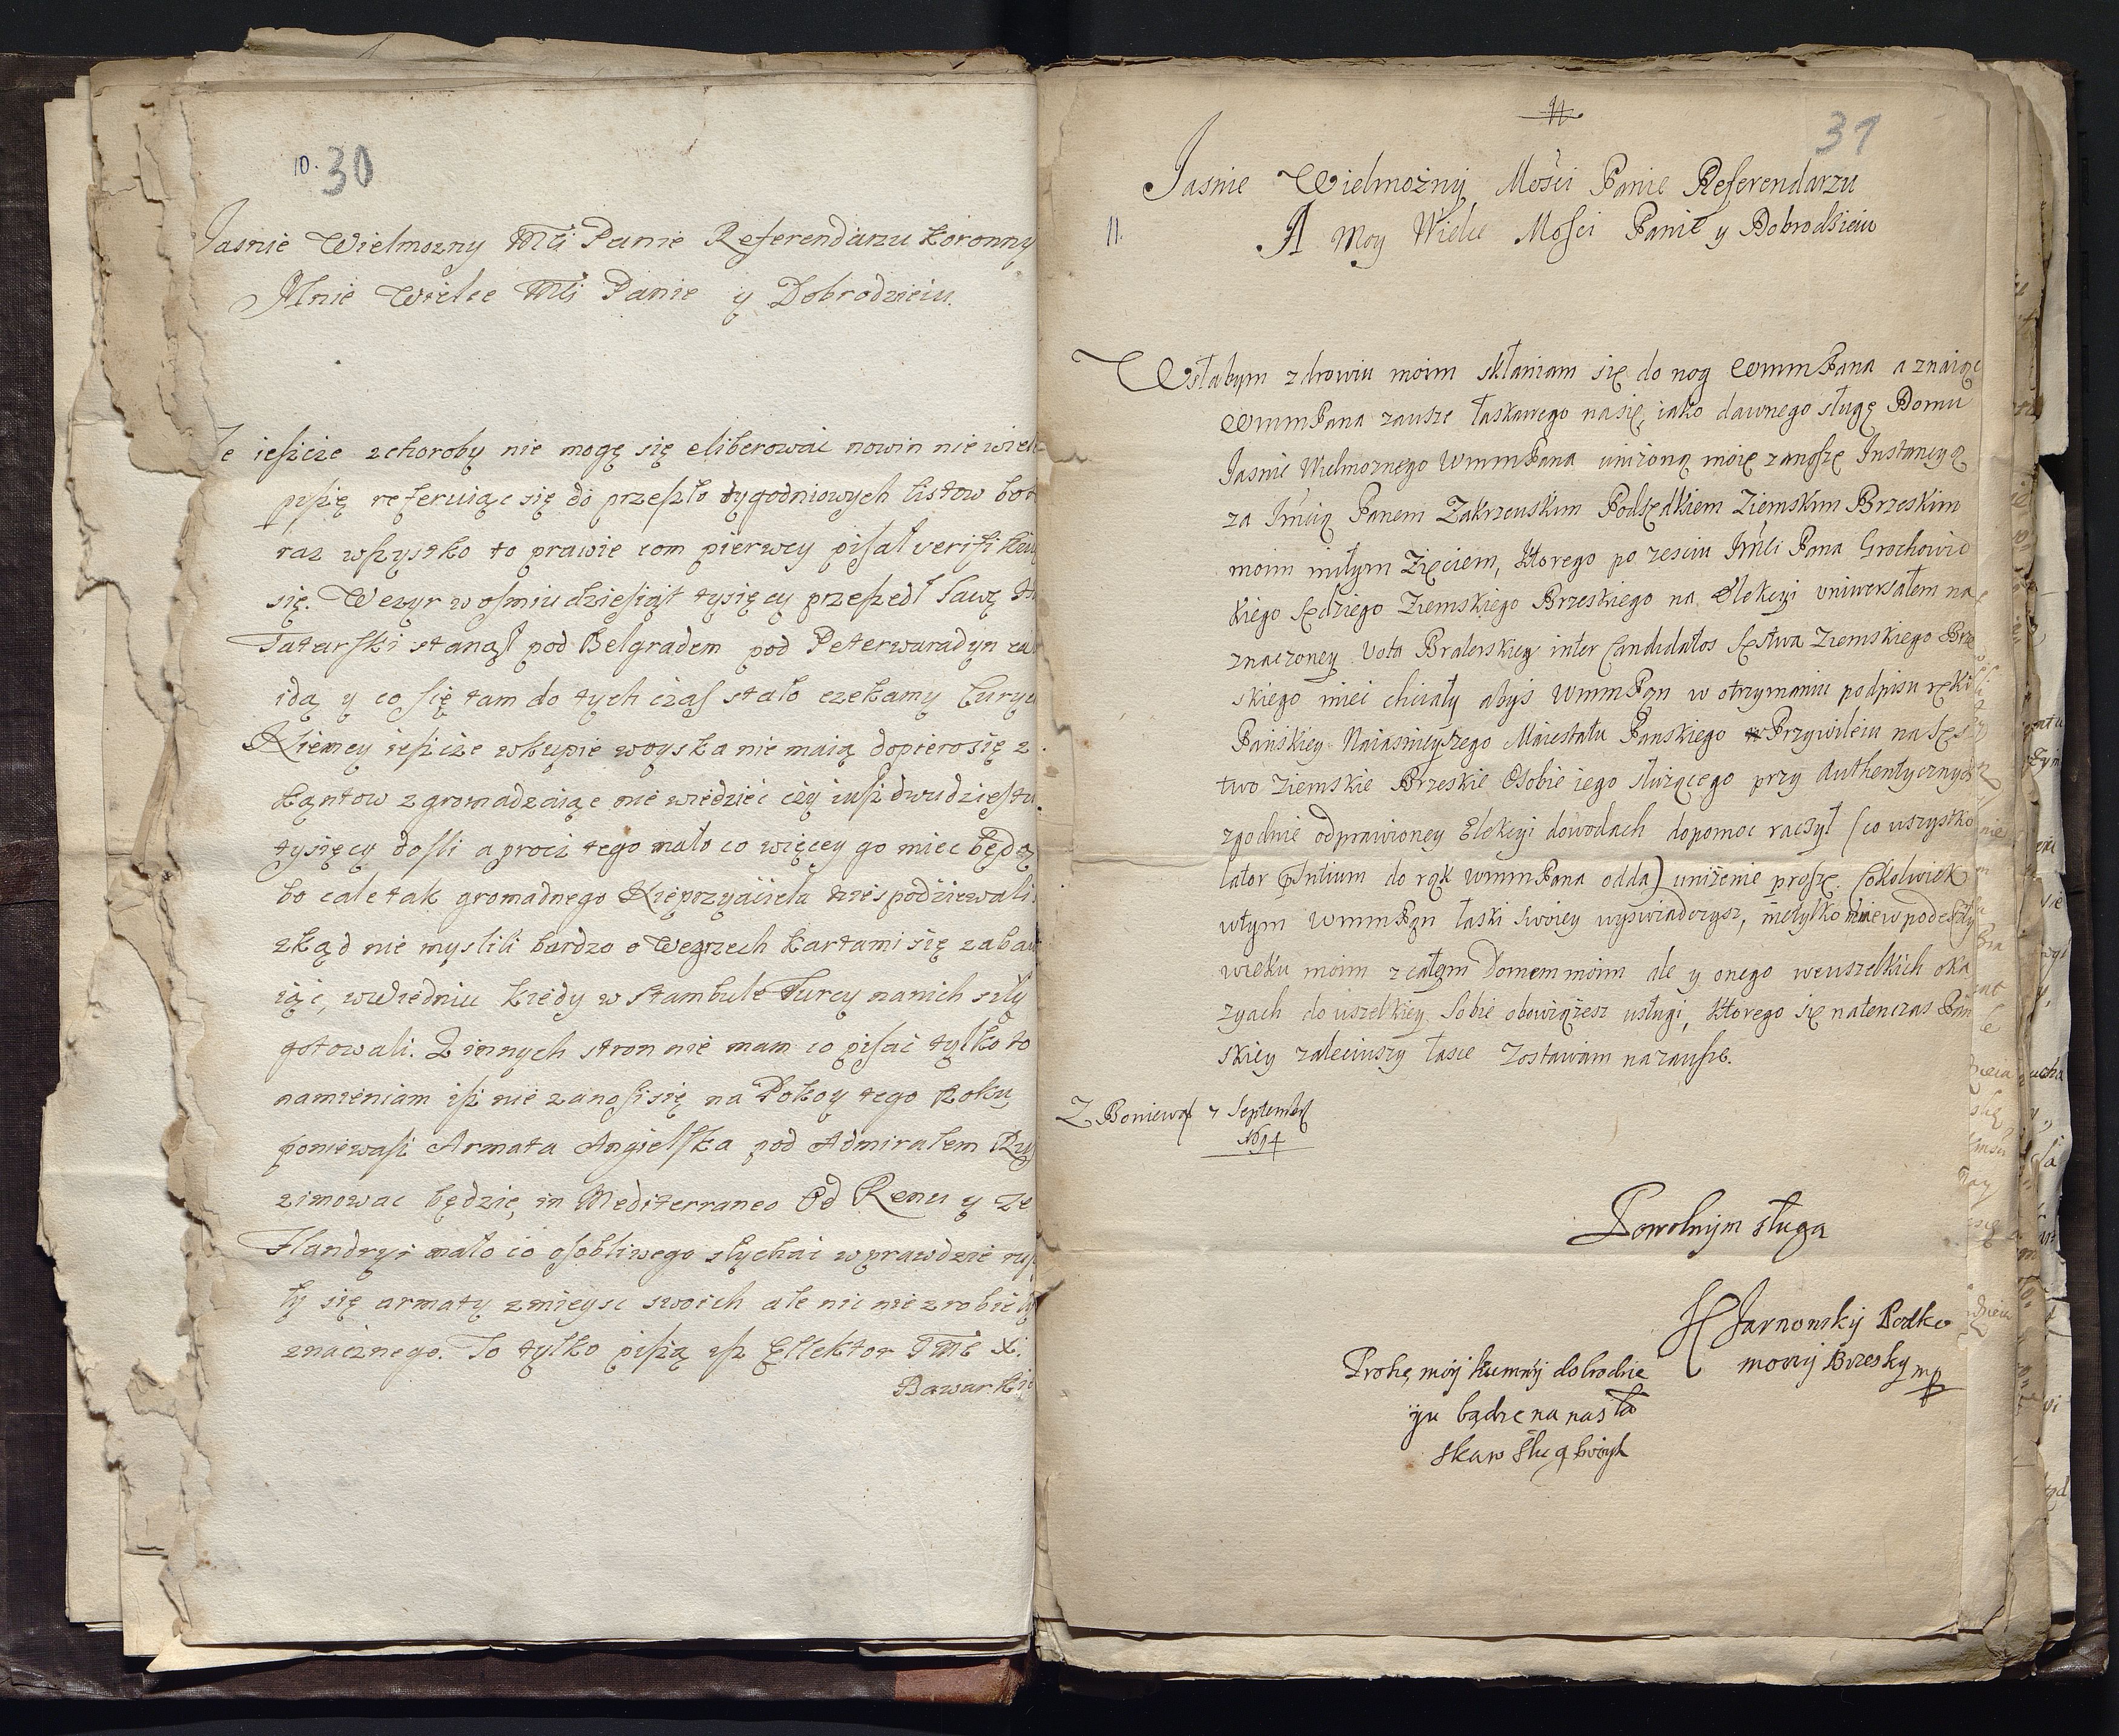 10. 30
Jasnie Wielmozny Mći Panie Referendarzu Koronny
Mnie Wielce Mći Panie y Dobrodzieiu.
Ze ieszcze z choroby nie mogę się eliberowac nowin nie wiel
piszę referuiąc się do przeszło tygodniowych listow bo
raz wszystko to prawie com pierwey pisał verifi
się. Wezyr w osmiudziesiąt tysięcy przeszedł Sawę
Tatarski stanął pod Belgradem pod Peterwaradyn
idą y co się tam do tych czas stało czekamy
Niemcy ieszcze w kupie woyska nie maią dopiero się z
kąntow zgromadzaiąc nie wiedziec czy iusz dwudziestu
tysięcy dosli a procz tego mało co więcey go miec będą
bo cale tak gromadnego Nieprzyaciela nie spodziewali
zkąd nie myslili bardzo o Węgrzech kartami się zaba
iąc, w Wiedniu kiedy w Stambule Turcy na nich siły
gotowali. Z innych stron nie mam co pisac tylko to
namieniam isz nie zanosi się na Pokoy tego Roku
poniewasz Armata Angielska pod Admirałem
zimowac będzie, in Mediterraneo Od Renu y ze
Flandryi mało co osobliwego słychac wprawdzie
ły się armaty z mieysc swoich ale nic nie zrobiły
znacznego. To tylko piszą isz Ellektor
Bawar
31
11.
Jasnie Wielmożny Mości Panie Referendarzu
A Moy Wielce Mości Panie y Dobrodzieiu
W słabym zdrowiu moim skłaniam się do nog WmmPana a znaiąc
WmmPana zawsze łaskawego na się, iako dawnego sługę Domu
Jasnie Wielmoznego WmmPana uniżoną moię zanoszę Instancyą
za Jmcią Panem Zakrzewskim Podsędkiem Ziemskim Brzeskim
moim miłym Zięciem, Ktorego po zesciu Jmći Pana Grochowic
kiego Sędziego Ziemskiego Brzeskiego na Elekcyi uniwersałem na
znaczoney Vota Braterskiey inter Candidatos Sęstwa Ziemskiego Brze
skiego miec chciały abyś WmmPan w otrzymaniu podpisu ręki
Pańskiey Naiasnieyszego Maiestatu Panskiego Przywileiu na Sęs
two Ziemskie Brzeskie Osobie iego służącego przy Authentycznych
zgodnie odprawioney Elekcyi dowodach dopomoc raczył (co wszystko
lator Pntium do rąk WmmPana odda) uniżenie proszę. Cokolwiek
w tym WmmPan łaski swoiey wyswiadczysz, nie tylko mnie w podeszłym
wieku moim z całym Domem moim ale y onego we wszelkich oka
zyach do wszelkiey Sobie obowiążesz usługi, Ktorego się natenczas Pań
skiey zaleciwszy łasce Zostawam na zawsze.
Z Boniewa 7 Septembris
1694
Powolnym sługą
Jarnowsky Podko
morzy Brzesky mp
Proszę, mój dobrodzie
yu bądz na nas ła
skaw sług swoych